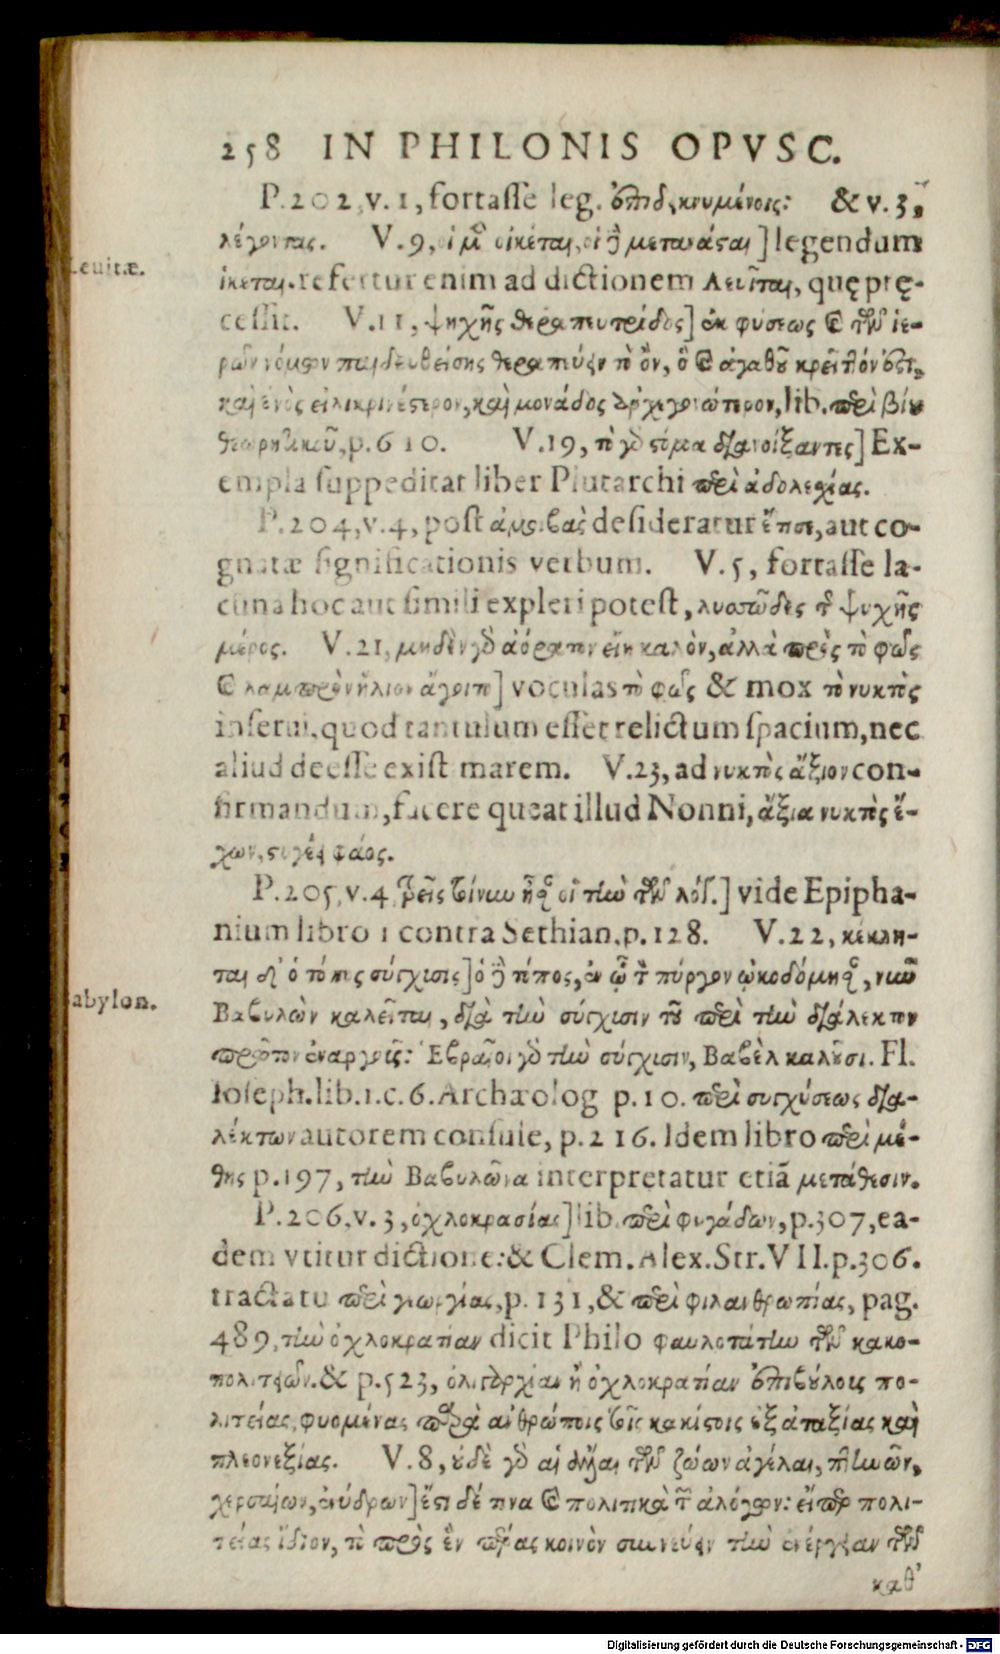 258 IN PHILONIS OPVSC.
P.202,v.1, fortasse leg. ἐπιδεικνυμένοις: & v.3,
λέγοντας. V.9, οἱ μὲν οἰκέται, οἱ δὲ μετανάσται] legendum
Leuitæ.
ἱκέται. refertur enim ad dictionem Λευῖται, quę prę-
cessit. V.11, ψυχῆς θεραπευτρίδος] ἐκ φύσεως καὶ τῶν ἱε-
ρῶν νόμων παιδευθείσης θεραπεύειν τὸ ὂν, ὃ καὶ ἀγαθοῦ κρεῖττόν ἐστι,
καὶ ἑνὸς εἰλικρινέστερον, καὶ μονάδος ἀρχεγονώτερον, lib. περὶ βίου
θεωρητικοῦ, p.610. V.19, τὸ γὰρ στόμα διανοίξαντες] Ex-
empla suppeditat liber Plutarchi περὶ ἀδολεσχίας.
P.204,v.4, post ἀμοιβὰς desideratur ἔπεται, aut co-
gnatæ significationis verbum. V.5, fortasse la-
cuna hoc aut simili expleri potest, λυσσῶδες τῆς ψυχῆς
μέρος. V.21, μηδὲν γὰρ ἀόρατον εἴη καλὸν, ἀλλὰ πρὸς τὸ φῶς
καὶ λαμπρὸν ἥλιον ἄγοιτο] voculas τὸ φῶς & mox τὸ νυκτὸς
inserui, quod tantulum esset relictum spacium, nec
aliud deesse existimarem. V.23, ad νυκτὸς ἄξιον con-
firmandum, facere queat illud Nonni, ἄξια νυκτὸς ἔ-
χων, φάος.
P.205,v.4, τρεῖς ] vide Epipha-
nium libro 1 contra Sethian.p.128. V.22, κέκλη-
ται δὲ ὁ τόπος σύγχισις] ὁ δὲ τόπος, ἐν ᾧ τὸν πύργον ᾠκοδόμησαν, νῦν
Babylon.
Βαβυλὼν καλεῖται, διὰ τὴν σύγχισιν τοῦ περὶ τὴν διάλεκτον
πρῶτον ἐναργοῦς: Ἑβραῖοι γὰρ τὴν σύγχισιν, Βαβὲλ καλοῦσι. Fl.
Ioseph.lib.1.c.6.Archæolog p.10. περὶ συγχύσεως δια-
λέκτων autorem consule, p.216. Idem libro περὶ μέ-
θης p.197, τὴν Βαβυλῶνα interpretatur etiā μετάθεσιν.
P.206,v.3, ὀχλοκρασίας] lib. περὶ φυγάδων, p.307, ea-
dem vtitur dictione: & Clem. Alex.Str.VII.p.306.
tractatu περὶ γεωργίας, p.131, & περὶ φιλανθρωπίας, pag.
489, τὴν ὀχλοκρατίαν dicit Philo φαυλοτάτην τῶν κακο-
πολιτειῶν. & p.523, ὀλιγαρχίαν ἢ ὀχλοκρατίαν ἐπιβούλοις πο-
λιτείας, φυομένας παρὰ ἀνθρώποις τοῖς κακίστοις ἐξ ἀταξίας καὶ
πλεονεξίας. V.8, οὐδὲ γὰρ αἱ δύναι τῶν ζώων ἀγέλαι, πτηνῶν,
χερσαίων, ἐνύδρων] ἔστι δέ τινα καὶ πολιτικὰ τῶν ἀλόγων: εἴπερ πολι-
τείας ἴδιον, τὸ πρὸς ἓν πέρας κοινὸν συννεύειν τὴν ἐνέργειαν τῶν
καθ'
Digitalisierung gefördert durch die Deutsche Forschungsgemeinschaft - DFG